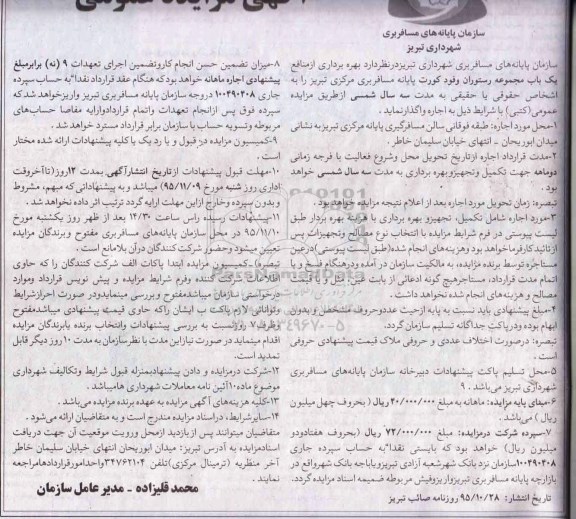 آگهی مزایده عمومی
سازمان پایانه‌های مسافربری
شهرداری تبریز
سازمان پایانه‌های مسافربری شهرداری تبریز درنظر دارد بهره برداری از منافع
یک باب مجموعه رستوران وفود کورت پایانه مسافربری مرکزی تبریز را به
اشخاص حقوقی یا حقیقی به مدت سه سال شمسی از طریق مزایده
عمومی (کتبی) با شرایط ذیل به اجاره واگذار نماید.
۱-محل مورد اجاره: طبقه فوقانی سالن مسافرگیری پایانه مرکزی تبریز به نشانی
میدان ابوریحان - انتهای خیابان سلیمان خاطر.
۲-مدت قرارداد اجاره از تاریخ تحویل محل وشروع فعالیت با فرجه زمانی
دوماهه جهت تکمیل وتجهیز وبهره برداری به مدت سه سال شمسی خواهد
بود.
تبصره: زمان تحویل مورد اجاره بعد از اعلام نتیجه مزایده خواهد بود.
۳-مورد اجاره شامل تکمیل، تجهیز و بهره برداری با هزینه بهره بردار طبق
لیست پیوستی در فرم شرایط مزایده با انتخاب نوع مصالح وتجهیزات پس
از تائید کارفرما خواهد بود وهزینه‌های انجام شده (طبق لیست پیوستی) در عین
مستاجره توسط برنده مزایده، به مالکیت سازمان در آمده ودرهنگام فسخ و یا
اتمام مدت قرارداد، مستاجر هیچ گونه ادعائی از بابت عین، مثل و یا قیمت
مصالح و هزینه‌های انجام شده نخواهد داشت.
۴-مبلغ پیشنهادی باید نسبت به پایه از حیث عدد وحروف مشخص و بدون
ابهام بوده ودر پاکت جداگانه تسلیم سازمان گردد.
تبصره: درصورت اختلاف عددی و حروفی ملاک قیمت پیشنهادی حروفی
است.
۵-محل تسلیم پاکت پیشنهادات دبیرخانه سازمان پایانه‌های مسافربری
شهرداری تبریز می‌باشد.
۶-مبنای پایه مزایده: ماهانه به مبلغ ۴۰/۰۰۰/۰۰۰ ریال (بحروف چهل میلیون
ریال) می‌باشد.
۷-سپرده شرکت درمزایده: مبلغ ۷۲/۰۰۰/۰۰۰ ریال (بحروف هفتاد ودو
میلیون ریال) خواهد بود که بایستی نقداً به حساب سپرده جاری
۱۰۰۴۹۰۲۰۸ سازمان نزد بانک شهر شعبه آزادی تبریز ویا باجه بانک شهر واقع در
بازارچه پایانه مسافربری تبریز واریز وفیش مربوطه ضمیمه اسناد مزایده گردد.
تاریخ انتشار: ۹۵/۱۰/۲۸ روزنامه صائب تبریز
۸-میزان تضمین حسن انجام کار وتضمین اجرای تعهدات ۹ (نه) برابر مبلغ
پیشنهادی اجاره ماهانه خواهد بود که هنگام عقد قرارداد نقداً به حساب سپرده
جاری ۱۰۰۴۹۰۲۰۸ در وجه سازمان پایانه مسافربری تبریز واریز خواهد شد که
سپرده فوق پس از انجام تعهدات واتمام قرارداد وارایه مفاصا حساب‌های
مربوطه وتسویه حساب با سازمان برابر قرارداد مسترد خواهد شد.
۹-کمیسیون مزایده در قبول و یا رد یک یا کلیه پیشنهادات ارائه شده مختار
است.
۱۰-مهلت قبول پیشنهادات از تاریخ انتشار آگهی بمدت ۱۲ روز (تا آخر وقت
اداری روز شنبه مورخ ۹۵/۱۱/۰۹) میباشد و به پیشنهاداتی که مبهم، مشروط
و بدون سپرده وخارج از این مهلت ارایه گردد ترتیب اثر داده نخواهد شد.
۱۱-پیشنهادات رسیده راس ساعت ۱۴/۳۰ بعد از ظهر روز یکشنبه مورخ
۹۵/۱۱/۱۰ در محل سازمان پایانه‌های مسافربری مفتوح وبرندگان مزایده
تعیین میشود وحضور شرکت کنندگان در آن بلامانع است.
تبصره: کمیسیون مزایده ابتدا پاکات الف شرکت کنندگان را که حاوی
اطلاعات شرکت کننده وفرم شرایط مزایده و پیش نویس قرارداد وموارد
درخواستی سازمان میباشد مفتوح وبررسی مینماید ودر صورت احراز شرایط
وتوانائی لازم پاکت ب ایشان راکه حاوی قیمت پیشنهادی میباشد مفتوح
وظرف ۷ روز نسبت به بررسی پیشنهادات وانتخاب برنده یابرندگان مزایده
اقدام مینماید در صورت نیاز این مدت با نظر سازمان به مدت ۱۰ روز دیگر قابل
تمدید است.
۱۲-شرکت درمزایده و دادن پیشنهاد بمنزله قبول شرایط وتکالیف شهرداری
موضوع ماده ۱۰ آئین نامه معاملات شهرداری ها میباشد.
۱۳-کلیه هزینه‌های آگهی مزایده به عهده برنده مزایده می‌باشد.
۱۴-سایر شرایط، در اسناد مزایده مندرج است و به متقاضیان ارائه می‌شود.
متقاضیان میتوانند پس از بازدید از محل ورویت موقعیت آن جهت دریافت
اسناد مزایده به آدرس تبریز: میدان ابوریحان انتهای خیابان سلیمان خاطر
آخر منظریه (ترمینال مرکزی) تلفن ۳۴۷۶۲۱۰۴ واحد امور قراردادها مراجعه
نمایند.
محمد قلیزاده - مدیر عامل سازمان